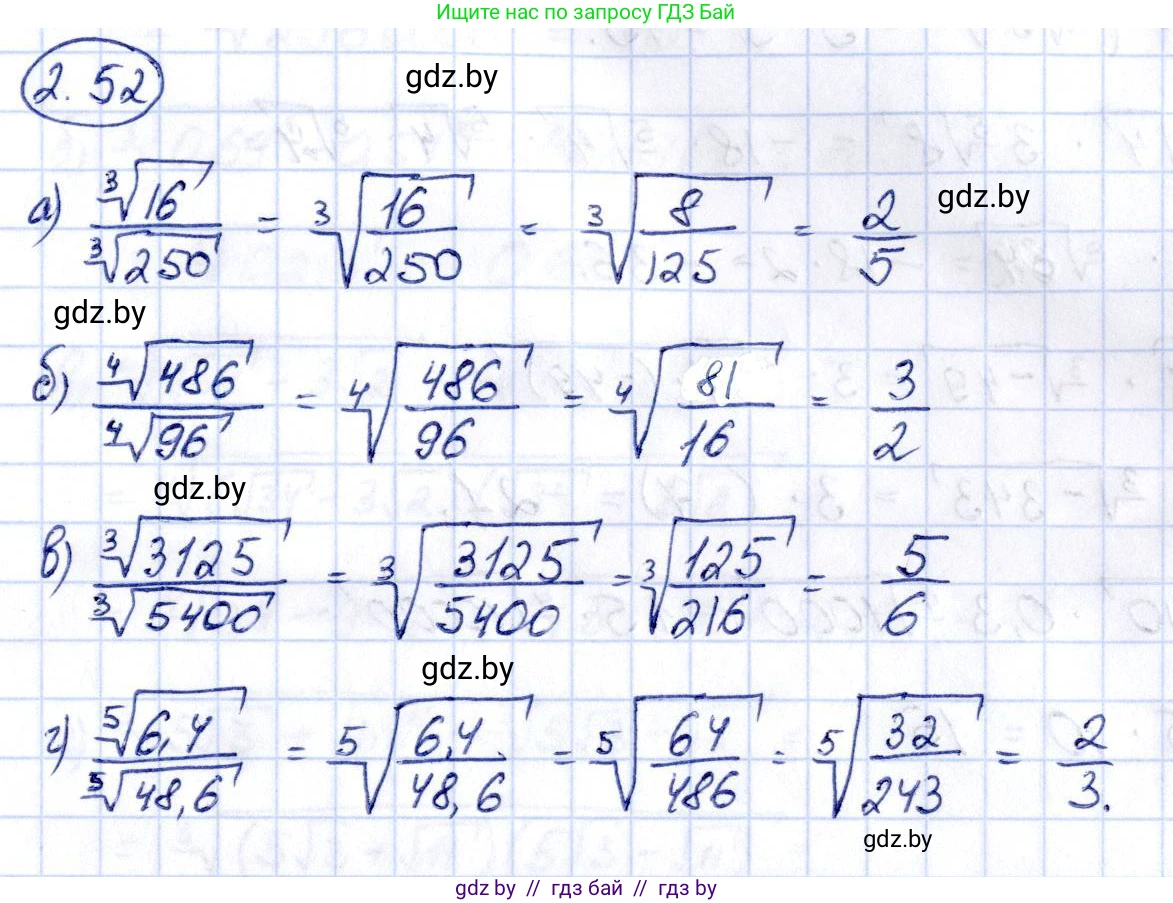 Ищите нас по запросу ГДЗ Бай
2.52
gdz.by
а) ∛16 / ∛250 = ∛(16/250) = ∛(8/125) = 2/5
gdz.by
gdz.by
б) ∜486 / ∜96 = ∜(486/96) = ∜(81/16) = 3/2
gdz.by
в) ∛3125 / ∛5400 = ∛(3125/5400) = ∛(125/216) = 5/6
gdz.by
г) ⁵√6,4 / ⁵√48,6 = ⁵√(6,4/48,6) = ⁵√(64/486) = ⁵√(32/243) = 2/3.
gdz.by
gdz.by // гдз бай // гдз by